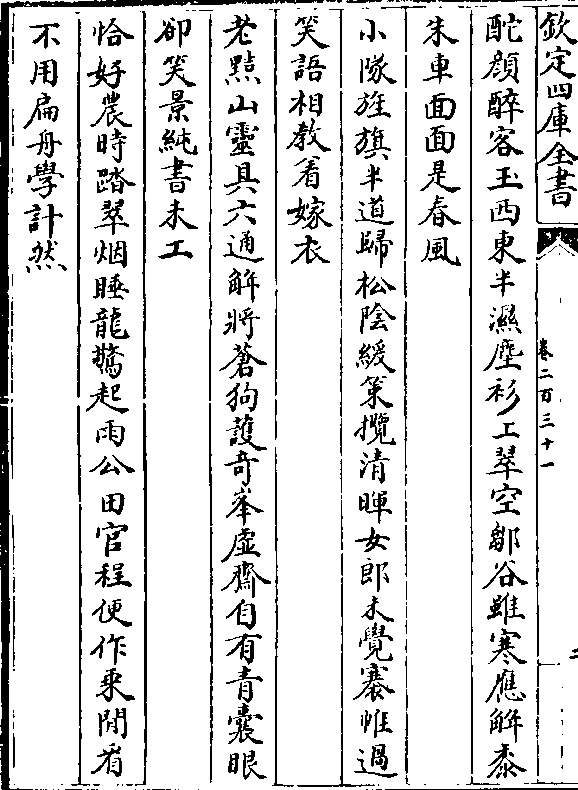 欽定四庫全書
卷二百三十一
酡顔醉客玉西東半濕塵衫上翠空鄒谷雖寒應解黍
朱車面面是春風
小隊旌旗半道歸松陰緩策攬清暉女郎未覺褰帷過
笑語相教着嫁衣
老㸃山靈具六通解將蒼狗護竒峯虛齋自有青囊眼
卻笑景純書未工
恰好農時踏翠烟睡龍驚起雨公田官程便作乗閒看
不用扁舟學計然